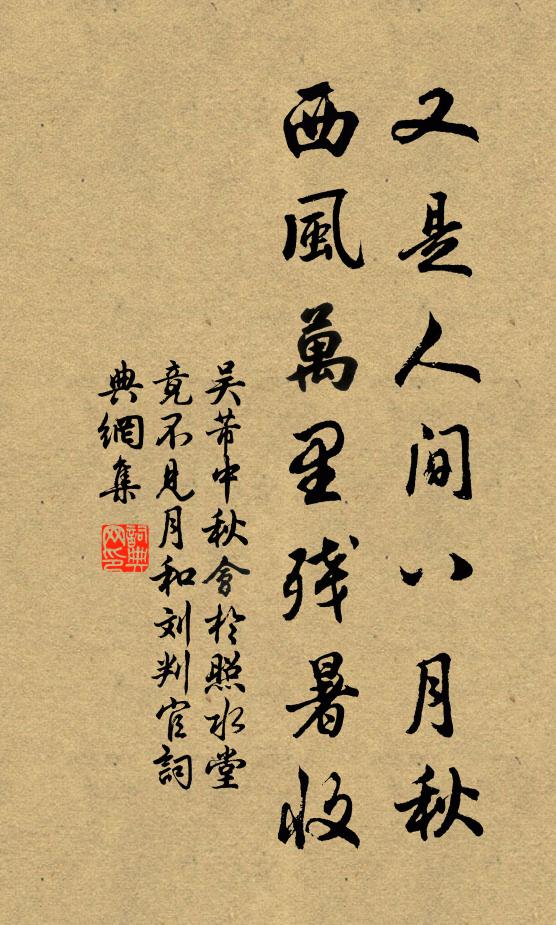 又是人間八月秋
西風萬里残暑收
吴芾中秋會於照水堂
竟不見月和刘判官詞
典網集
詞典
网印